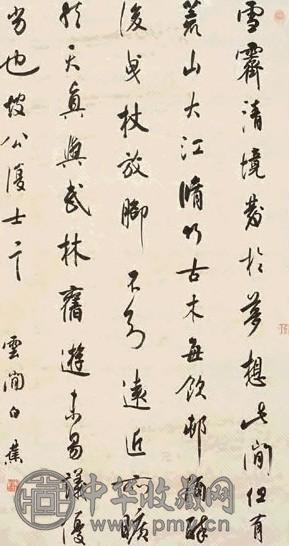 雪霽清境發於夢想此間但有
荒山大江脩竹古木每飲邨酒醉
後曳杖放脚不知遠近亦曠
然天真與武林舊遊未易議優
劣也坡公復士言
雲間白蕉
中华收藏网
www.pmcn.cn